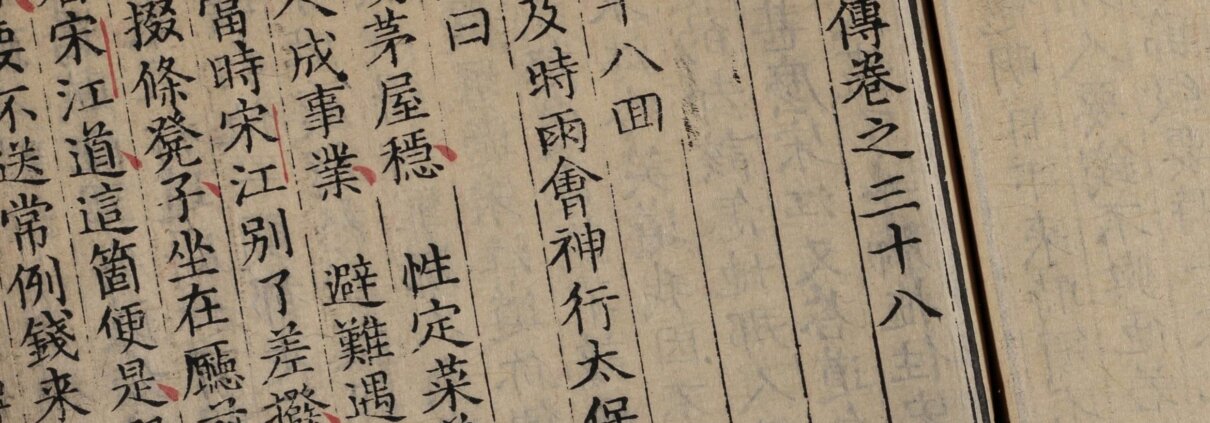 傳卷之三十八
十八回
及時雨會神行太保
曰
茅屋穩　性定菜
人成事業　避難遇
當時宋江别了差撥
掇條凳子坐在廳
宋江道這箇便是
要不送常例錢来